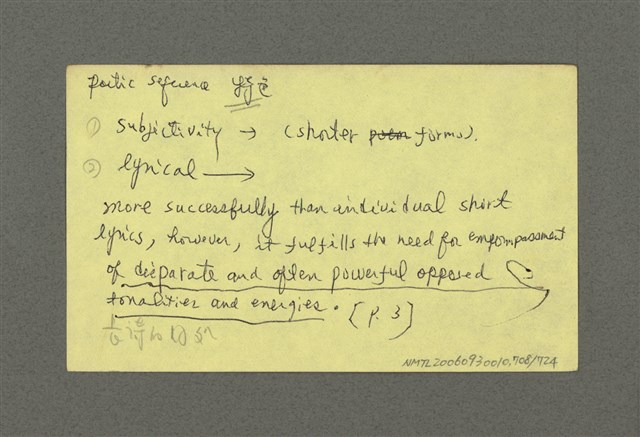 poetic sequence 特色
① subjectivity → (shorter poem forms).
② lyrical →
more successfully than individual short
lyrics, however, it fulfills the need for
of disparate and often powerful opposed
tonalities and energies. [P. 3]
NMTL20060930010,708/724